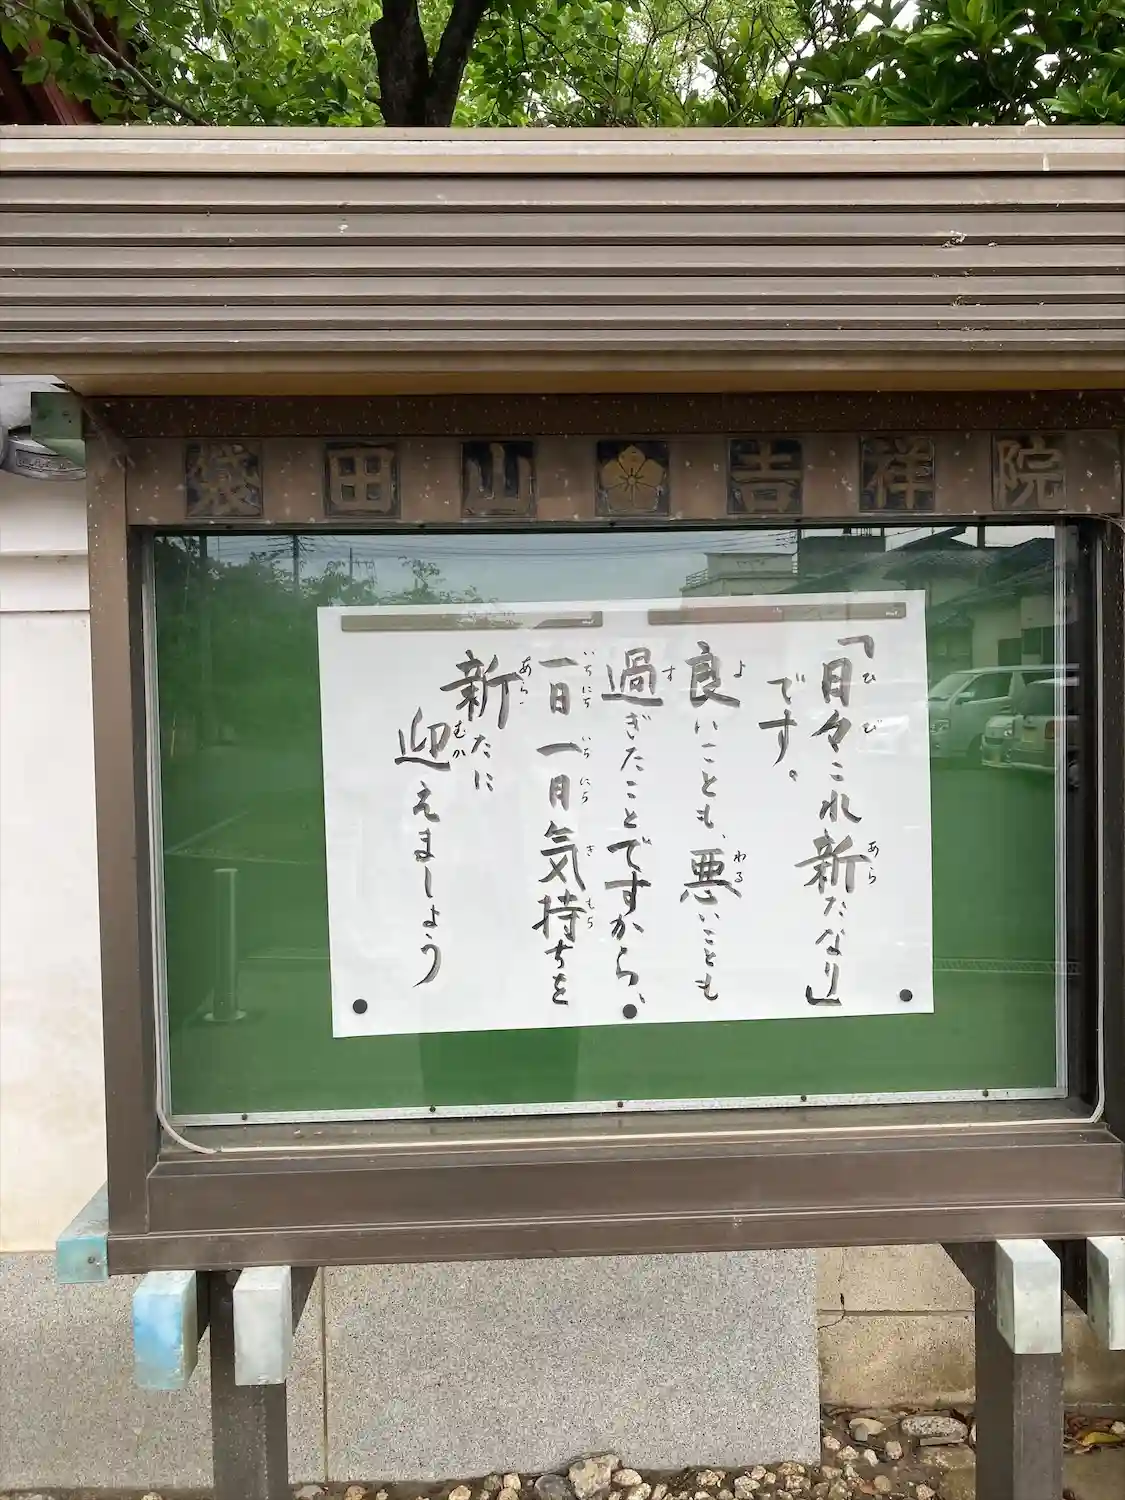 袋田山吉祥院
「日々これ新たなり」
です。
良いことも、悪いことも
過ぎたことですから、
一日一日気持ちを
新たに
迎えましょう